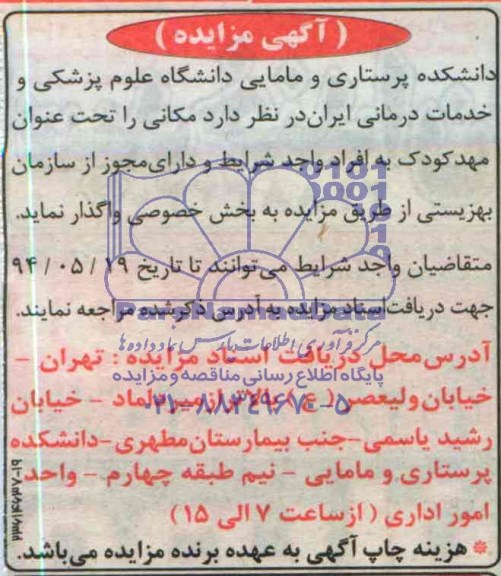 ( آگهی مزایده )
دانشکده پرستاری و مامایی دانشگاه علوم پزشکی و
خدمات درمانی ایران در نظر دارد مکانی را تحت عنوان
مهدکودک به افراد واجد شرایط و دارای مجوز از سازمان
بهزیستی از طریق مزایده به بخش خصوصی واگذار نماید.
متقاضیان واجد شرایط می توانند تا تاریخ ۱۹ / ۰۵ / ۹۴
جهت دریافت اسناد مزایده به آدرس ذکر شده مراجعه نمایند.
ParsNamadData
مرکز فرآوری اطلاعات پارس نماد داده ها
آدرس محل دریافت اسناد مزایده : تهران -
پایگاه اطلاع رسانی مناقصه و مزایده
خیابان ولیعصر ( ع ) بالاتر از میرداماد - خیابان
۰۲۱-۸۸۳۴۹۶۷۰-۵
رشید یاسمی-جنب بیمارستان مطهری-دانشکده
پرستاری و مامایی - نیم طبقه چهارم - واحد
امور اداری ( از ساعت ۷ الی ۱۵ )
* هزینه چاپ آگهی به عهده برنده مزایده می باشد.